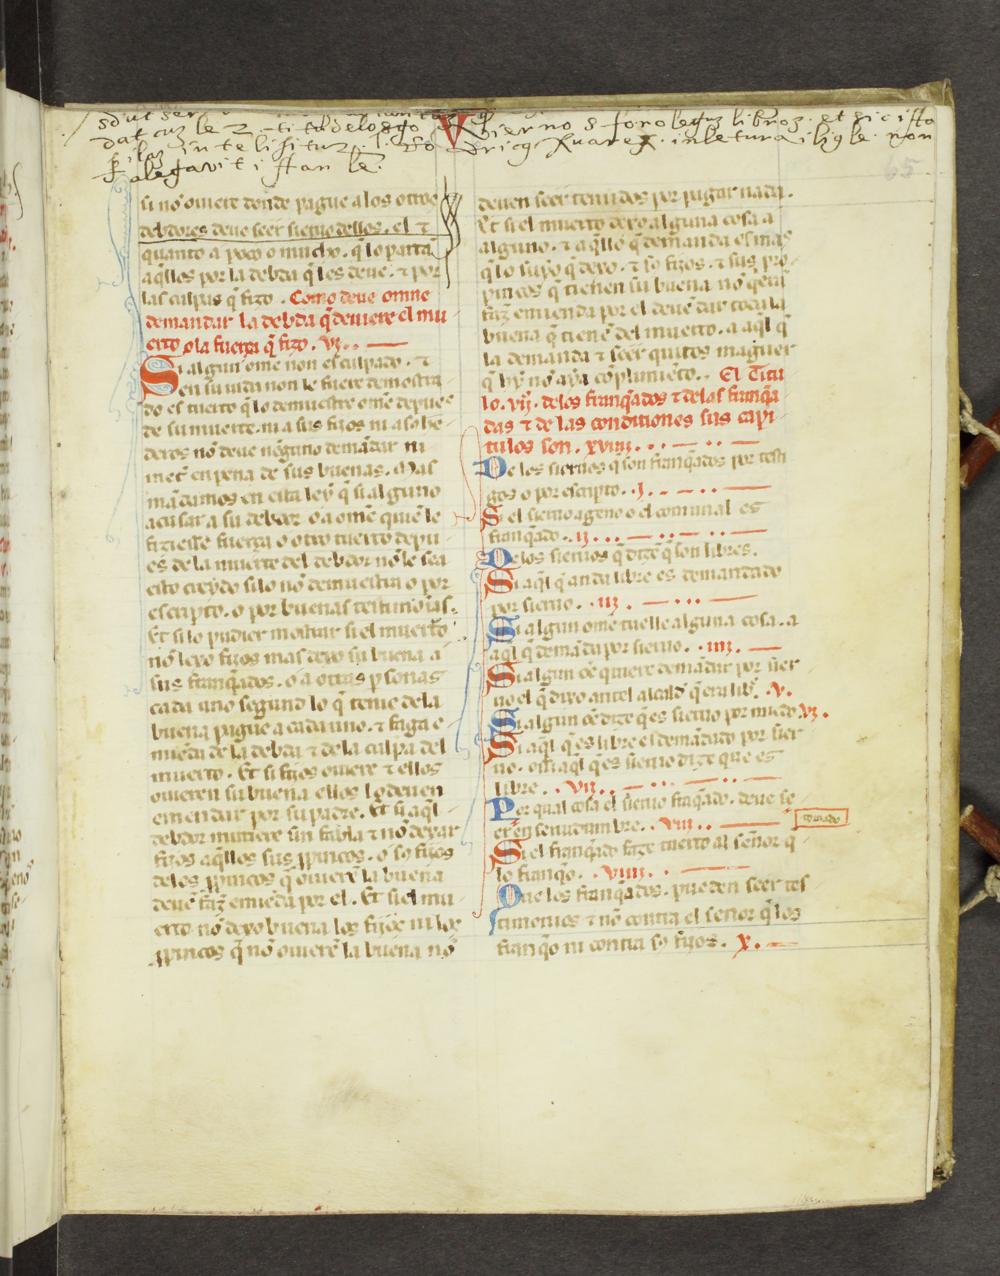 65
V
si no ouiere donde pague a los otros
debdores deue seer sieruo dellos. el ⁊
quanto a poco o mucho. q̃ lo parta
aq̃llos por la debda q̃ les deue. ⁊ por
las culpas q̃ fizo. Como deue omne
demandar la debda q̃ deuiere el mu
erto o la fuerça q̃ fizo. vj.
Si algun ome non es culpado. ⁊
en su uida non le fuere demostra
do es tuerto q̃ lo demuestre om̃e depues
de su muerte. ni a sus fijos ni a so he
deros no deue nẽguno demãdar ni
meter en pena de sus buenas. Mas
mãdamos en esta ley q̃ si alguno
acusar a su debdor o a om̃e quiẽ le
fiziesse fuerça o otro tuerto depu
es de la muerte del debdor nõ le sea
esto creydo si lo nõ demuestra o por
escripto. o por buenas testimonias.
Et si lo pudier mostrar si el muerto
nõ lexo fijos mas dexo su buena a
sus franq̃ados. o a otras psonas
cada uno segund lo q̃ tiene dela
buena pague a cada uno. ⁊ faga e
mienda de la debda ⁊ de la culpa del
muerto. Et si fijos ouiere ⁊ ellos
ouieren su buena ellos lo deuen
emendar por su padre. Et si aq̃l
debdor muriere sin fabla ⁊ nõ dexar
fijos aq̃llos sus ꝓpincos. o so fijos
delos ꝓpincos q̃ ouierẽ la buena
deuẽ faz̃ emiẽda por el. Et si el mu
erto nõ dexo buena los fijos ni los
ꝓpincos q̃ nõ ouierẽ la buena nõ
deuen seer tenudos por pagar nada.
Et si el muerto dexo alguna cosa a
alguno. ⁊ aq̃llo q̃ demanda es mas
q̃ lo suyo q̃ dexo. ⁊ so fijos. ⁊ sus pro
pincos q̃ tienen su buena nõ q̃erẽ
faz̃ emienda por el deuẽ dar toda la
buena q̃ tienẽ del muerto. a aq̃l q̃
la demanda ⁊ seer quitos maguer
q̃ hy nõ aya cõplimiẽto. El Titu
lo. vij. delos franq̃ados ⁊ delas franq̃a
das ⁊ de las conditiones sus capi
tulos son. xviiij.
De los sieruos q̃ son franq̃ados por testi
gos o por escripto. .j.
Si el sieruo ageno o el comunal es
franq̃ado. .ij.
De los sieruos q̃ dizẽ q̃ son libres.
Si aq̃l q̃ anda libre es demandado
por sieruo. .iij.
Si algun ome tuelle alguna cosa. a
aq̃l q̃ demãda por sieruo. .iiij.
Si algun õe quiere demãdar por sier
uo el q̃ dixo antel alcald̃ q̃ era lib̃r. .v.
Si algun õe dize q̃ es sieruo por miedo vj.
Si aq̃l q̃ es libre es demãdado por sier
uo. o si aq̃l q̃ es sieruo dize que es
libre. . vij.
Por qual cosa el sieruo frãq̃ado. deue se
er en seruidumbre. . viij. tornado
Si el franq̃ado faze tuerto al señor q̃
lo franq̃o. . viiij.
Que los franq̃ados. pueden seer tes
timonios ⁊ nõ contra el señor q̃ los
franq̃o ni contra so fijos. x.